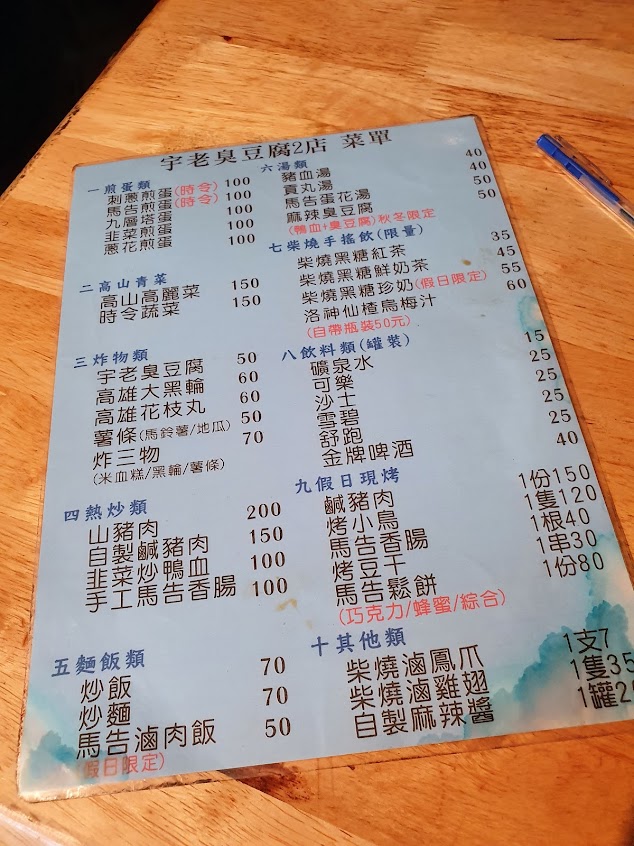 宇老臭豆腐2店 菜單
一煎蛋類
刺蔥煎蛋(時令) 100
馬告煎蛋(時令) 100
九層塔蛋 100
韭菜煎蛋 100
蔥花煎蛋 100
二高山青菜
高山高麗菜 150
時令蔬菜 150
三炸物類
宇老臭豆腐 50
高雄大黑輪 60
高雄花枝丸 60
薯條(馬鈴薯/地瓜) 50
炸三物 70
(米血糕/黑輪/薯條)
四熱炒類
山豬肉 200
自製鹹豬肉 150
韭菜炒鴨血 100
手工馬告香腸 100
五麵飯類
炒飯 70
炒麵 70
馬告滷肉飯 50
(假日限定)
六湯類
豬血湯 40
貢丸湯 40
馬告蛋花湯 50
麻辣臭豆腐 50
(鴨血+臭豆腐)秋冬限定
七柴燒手搖飲(限量)
柴燒黑糖紅茶 35
柴燒黑糖鮮奶茶 45
柴燒黑糖珍奶(假日限定) 55
洛神仙楂烏梅汁 60
(自帶瓶裝50元)
八飲料類(罐裝)
礦泉水 15
可樂 25
沙士 25
雪碧 25
舒跑 25
金牌啤酒 40
九假日現烤
鹹豬肉 1份150
烤小鳥 1隻120
馬告香腸 1根40
烤豆干 1串30
馬告鬆餅 1份80
(巧克力/蜂蜜/綜合)
十其他類
柴燒滷鳳爪 1支7
柴燒滷雞翅 1隻35
自製麻辣醬 1罐